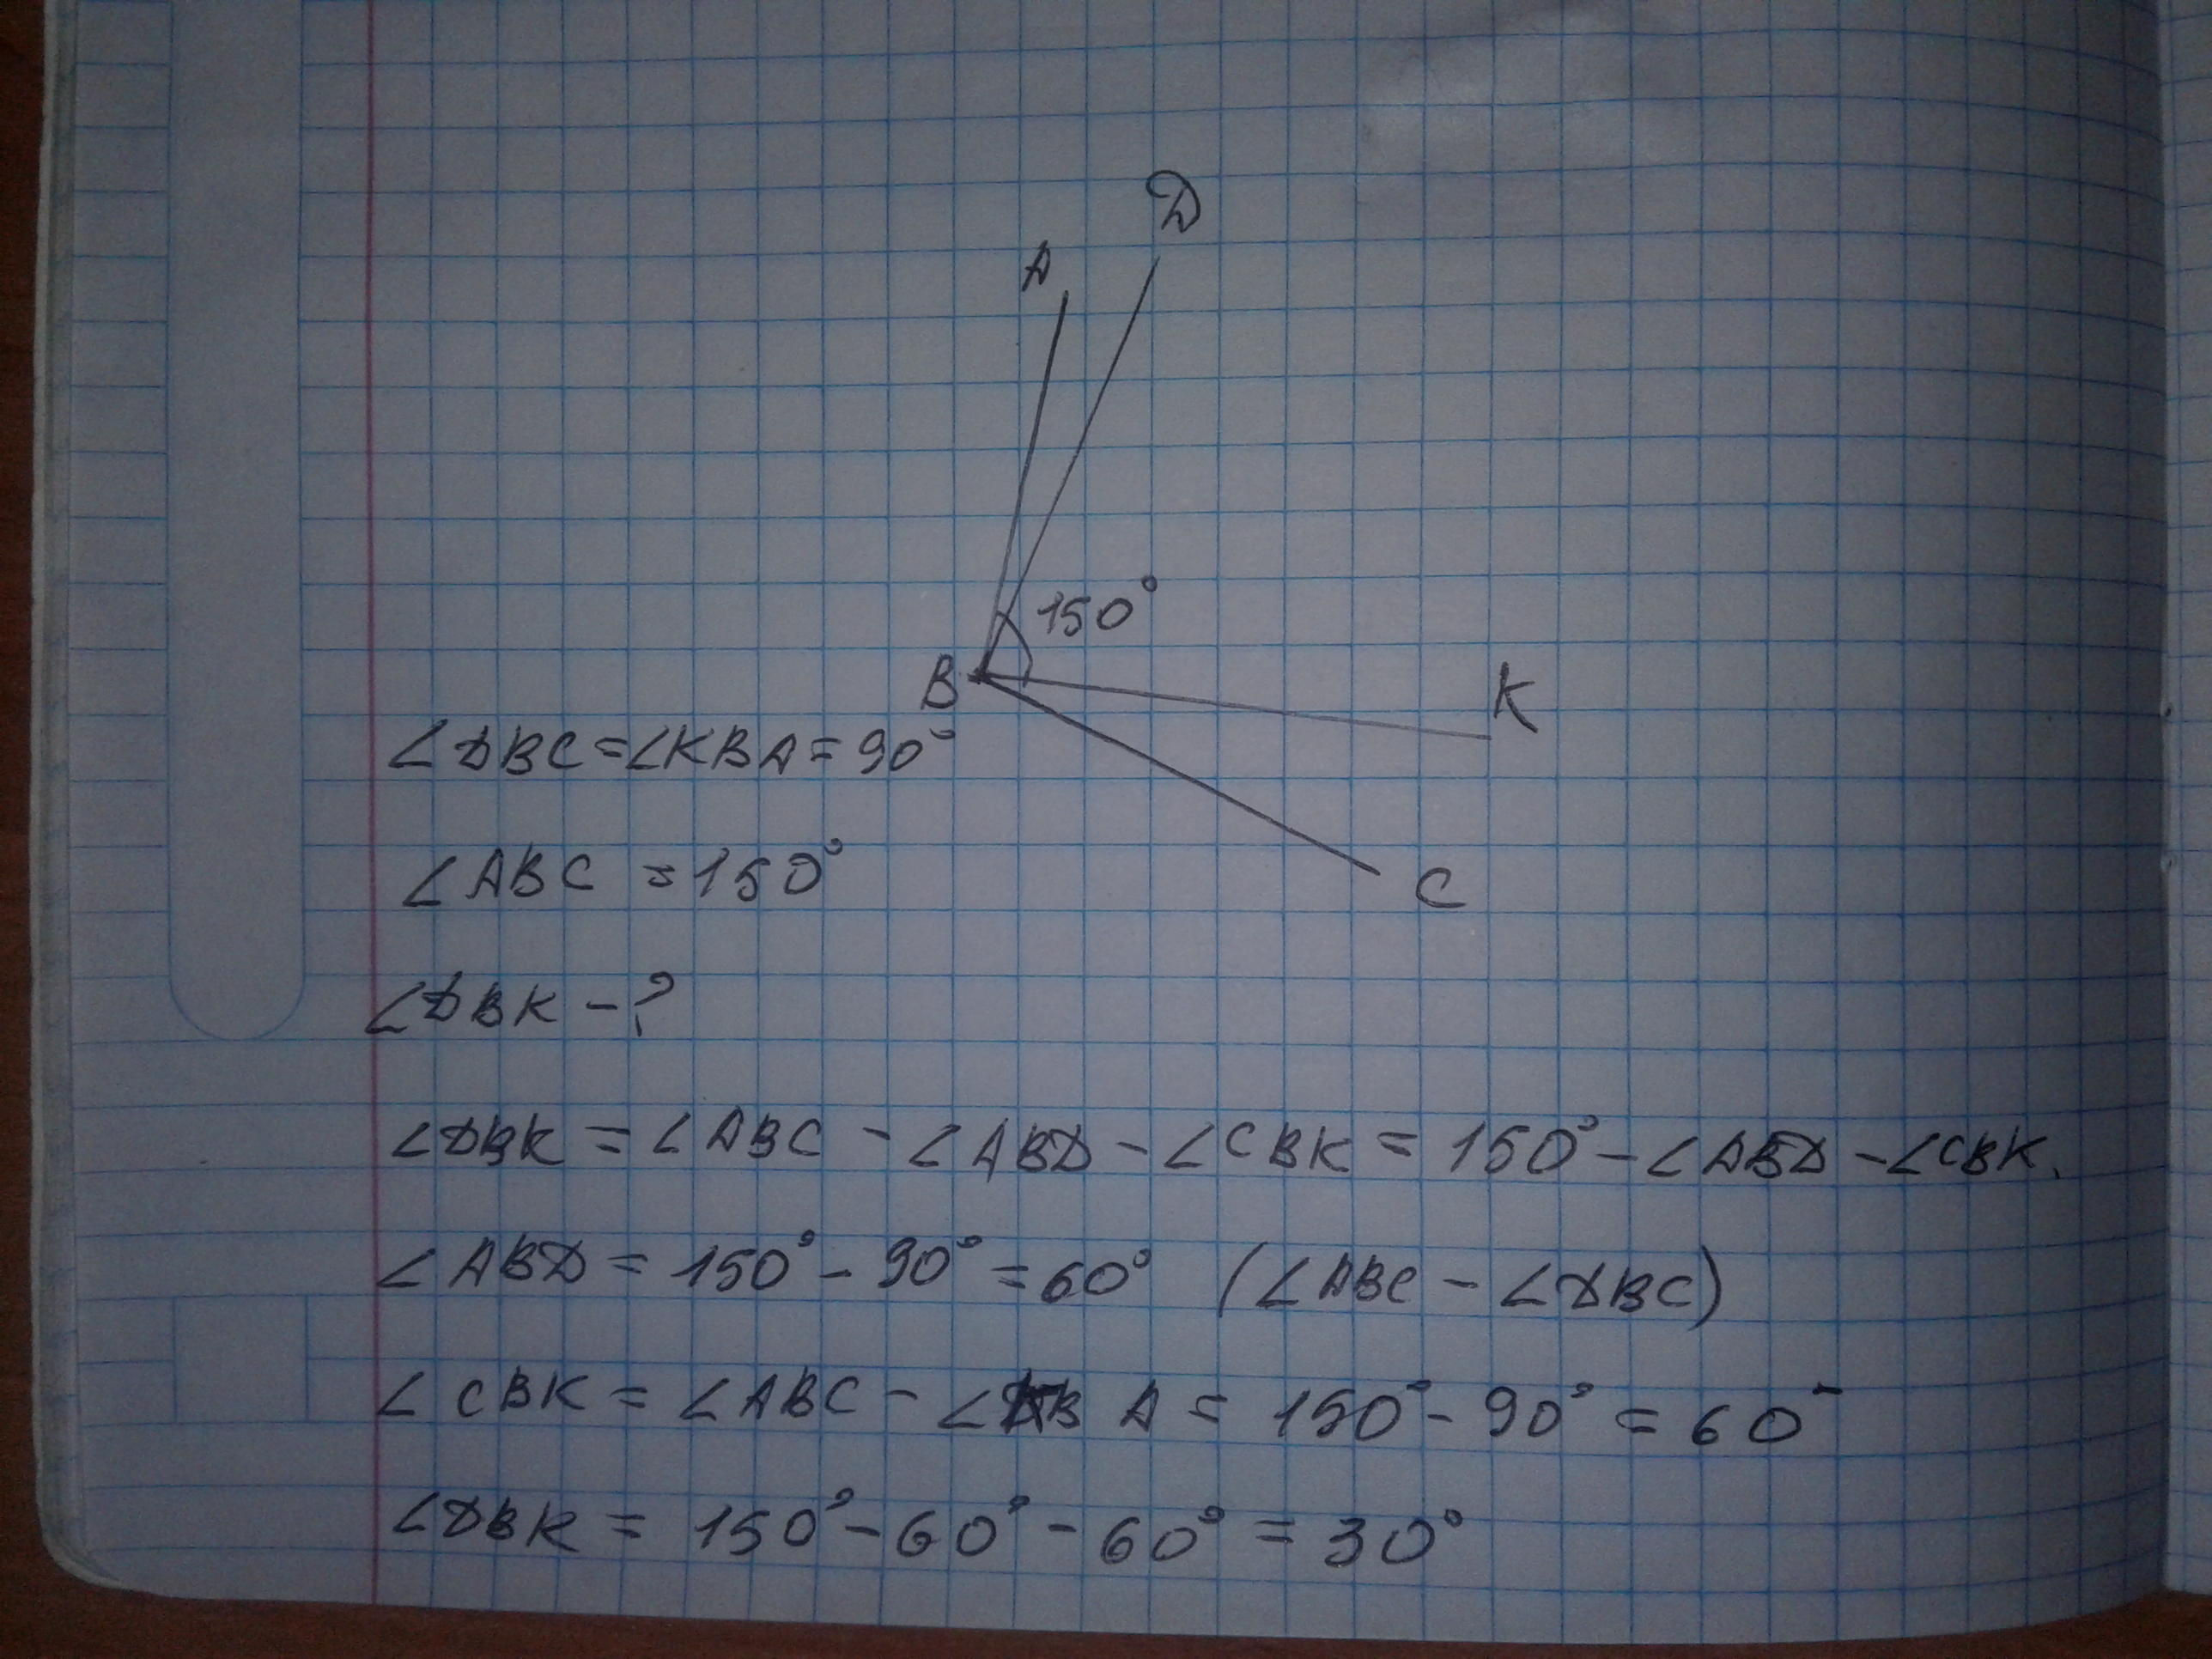 D
A
150°
B
K
C
∠DBC=∠KBA=90°
∠ABC = 150°
∠DBK - ?
∠DBK = ∠ABC - ∠ABD - ∠CBK = 150° - ∠ABD - ∠CBK.
∠ABD = 150° - 90° = 60° (∠ABC - ∠DBC)
∠CBK = ∠ABC - ∠KBA = 150° - 90° = 60°
∠DBK = 150° - 60° - 60° = 30°